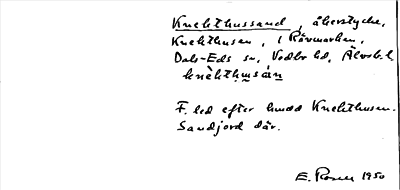 Knehthussand, åkerstycke,
Knehthusen, i Rävmarken,
Dals-Eds sn, Vedbo hd, Älvsb. l.
knèhthu̱sán
F. led efter hmdd Knehthusen.
Sandjord där.
E. Rosen 1950